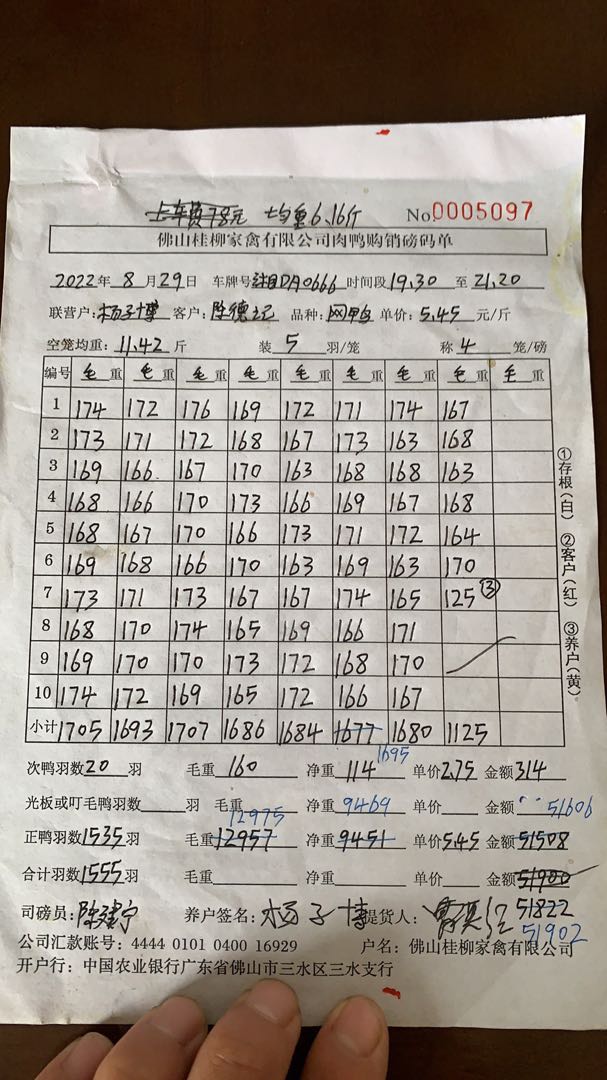 卡车费78元 均重6.16斤 No.0005097
佛山桂柳家禽有限公司肉鸭购销磅码单
2022年8月29日 车牌号DA0666 时间段19.30至21.20
联营户:杨子博 客户:陈德记 品种:网鸭 单价:5.45元/斤
空笼均重:11.42斤 装5羽/笼 称4笼/磅
编号 毛重 毛重 毛重 毛重 毛重 毛重 毛重 毛重 毛重
1 174 172 176 169 172 171 174 167
2 173 171 172 168 167 173 163 168
3 169 166 167 170 163 168 168 163
4 168 166 170 173 166 169 167 168
5 168 167 170 166 173 171 172 164
6 169 168 166 170 163 169 163 170
7 173 171 173 167 167 174 165 125 ③
8 168 170 174 165 169 166 171
9 169 170 170 173 172 168 170
10 174 172 169 165 172 166 167
小计 1705 1693 1707 1686 1684 1677 1680 1125
1695
次鸭羽数20羽 毛重160 净重114 单价2.75 金额314
光板或叮毛鸭羽数 羽 毛重 净重9469 单价 金额51606
12975
正鸭羽数1535羽 毛重12957 净重9451 单价5.45 金额51508
合计羽数1555羽 毛重 净重 单价 金额51900
51822
51902
司磅员:陈建宁 养户签名:杨子博 提货人:
公司汇款账号:4444 0101 0400 16929 户名:佛山桂柳家禽有限公司
开户行:中国农业银行广东省佛山市三水区三水支行
①存根(白) ②客户(红) ③养户(黄)